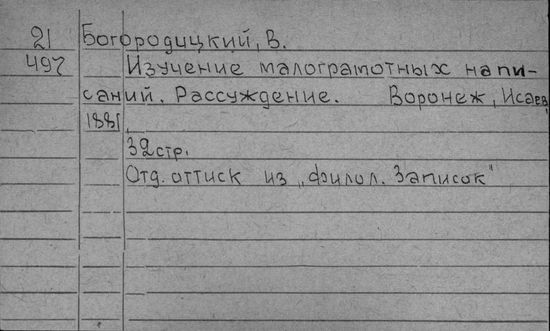 21 Богородицкий, В.
497 Изучение малограмотных напи-
саний. Рассуждение. Воронеж, Исаев,
1881.
32 стр.
Отд. оттиск из „Филол. Записок"